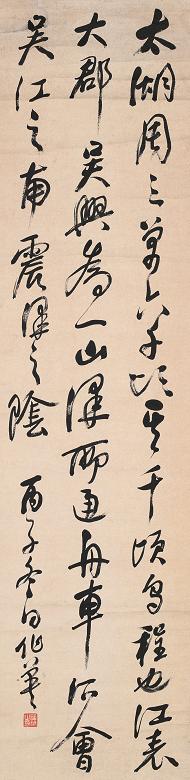 太湖周三萬六千頃其千頃烏程也江表
大郡吳興為一山澤所通舟車所會
吳江之南震澤之陰 丙子冬日伯英